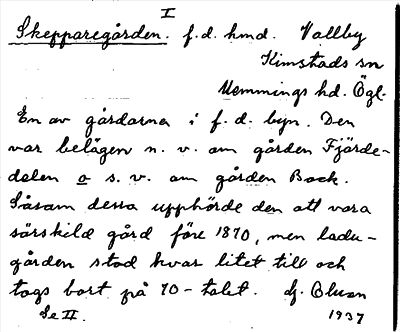 I
Skepparegården. f.d. hmd. Vallby
Kimstads sn
Memmings hd. Ögl.
En av gårdarna i f.d. byn. Den
var belägen n.v. om gården Fjärde-
delen o s.v. om gården Back.
Såsom dessa upphörde den att vara
särskild gård före 1870, men ladu-
gården stod kvar litet till och
togs bort på 70-talet.
Se II. 1937